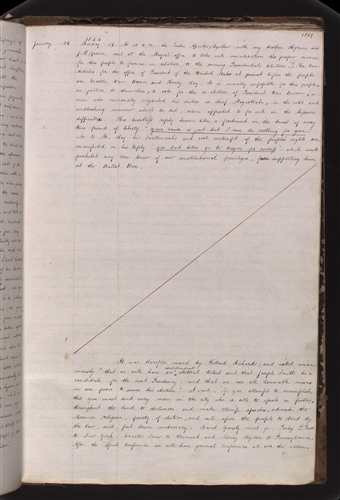 1844
1869
January 29 Monday 29. At 10 a.m. the Twelve Apostles, together with my brother Hyrum, and
J. P. Greene, met at the Mayor's office, to take into consideration the proper course
for this people to pursue in relation to the coming Presidential Election. The
candidates for the office of President of the United States at present before the people
are Martin Van Buren and Henry Clay. It is morally impossible for this people,
in justice to themselves, to vote for the re-election of President Van Buren, a
man who criminally neglected his duties as chief magistrate, in the cold and
unblushing manner which he did, when appealed to for aid in the Missouri
difficulties. His heartless reply burns like a firebrand in the breast of every
true friend of liberty "your cause is just but I can do nothing for you."
As to Mr Clay his sentiments and cool contempt of the people's rights are
manifested in his reply "you had better go to Oregon for redress" which would
prohibit any true lover of our constitutional privileges, from supporting him
at the Ballot Box.
It was therefore moved by Willard Richards, and voted unan-
imously "that we will have an independent electoral ticket and that Joseph Smith be a
candidate for the next Presidency, and that we use all honorable means
in our power to secure his election." I said, "If you attempt to accomplish
this you must send every man in the city who is able to speak in public
throughout the land to electioneer and make stump speeches, advocate the
Mormon religion, purity of elections, and call upon the people to stand by
the law, and put down mobocracy.
to New York, Erastus Snow to Vermont and Sidney Rigdon to Pennsylvania.
After the April Conference we will have general Conferences all over the nation,